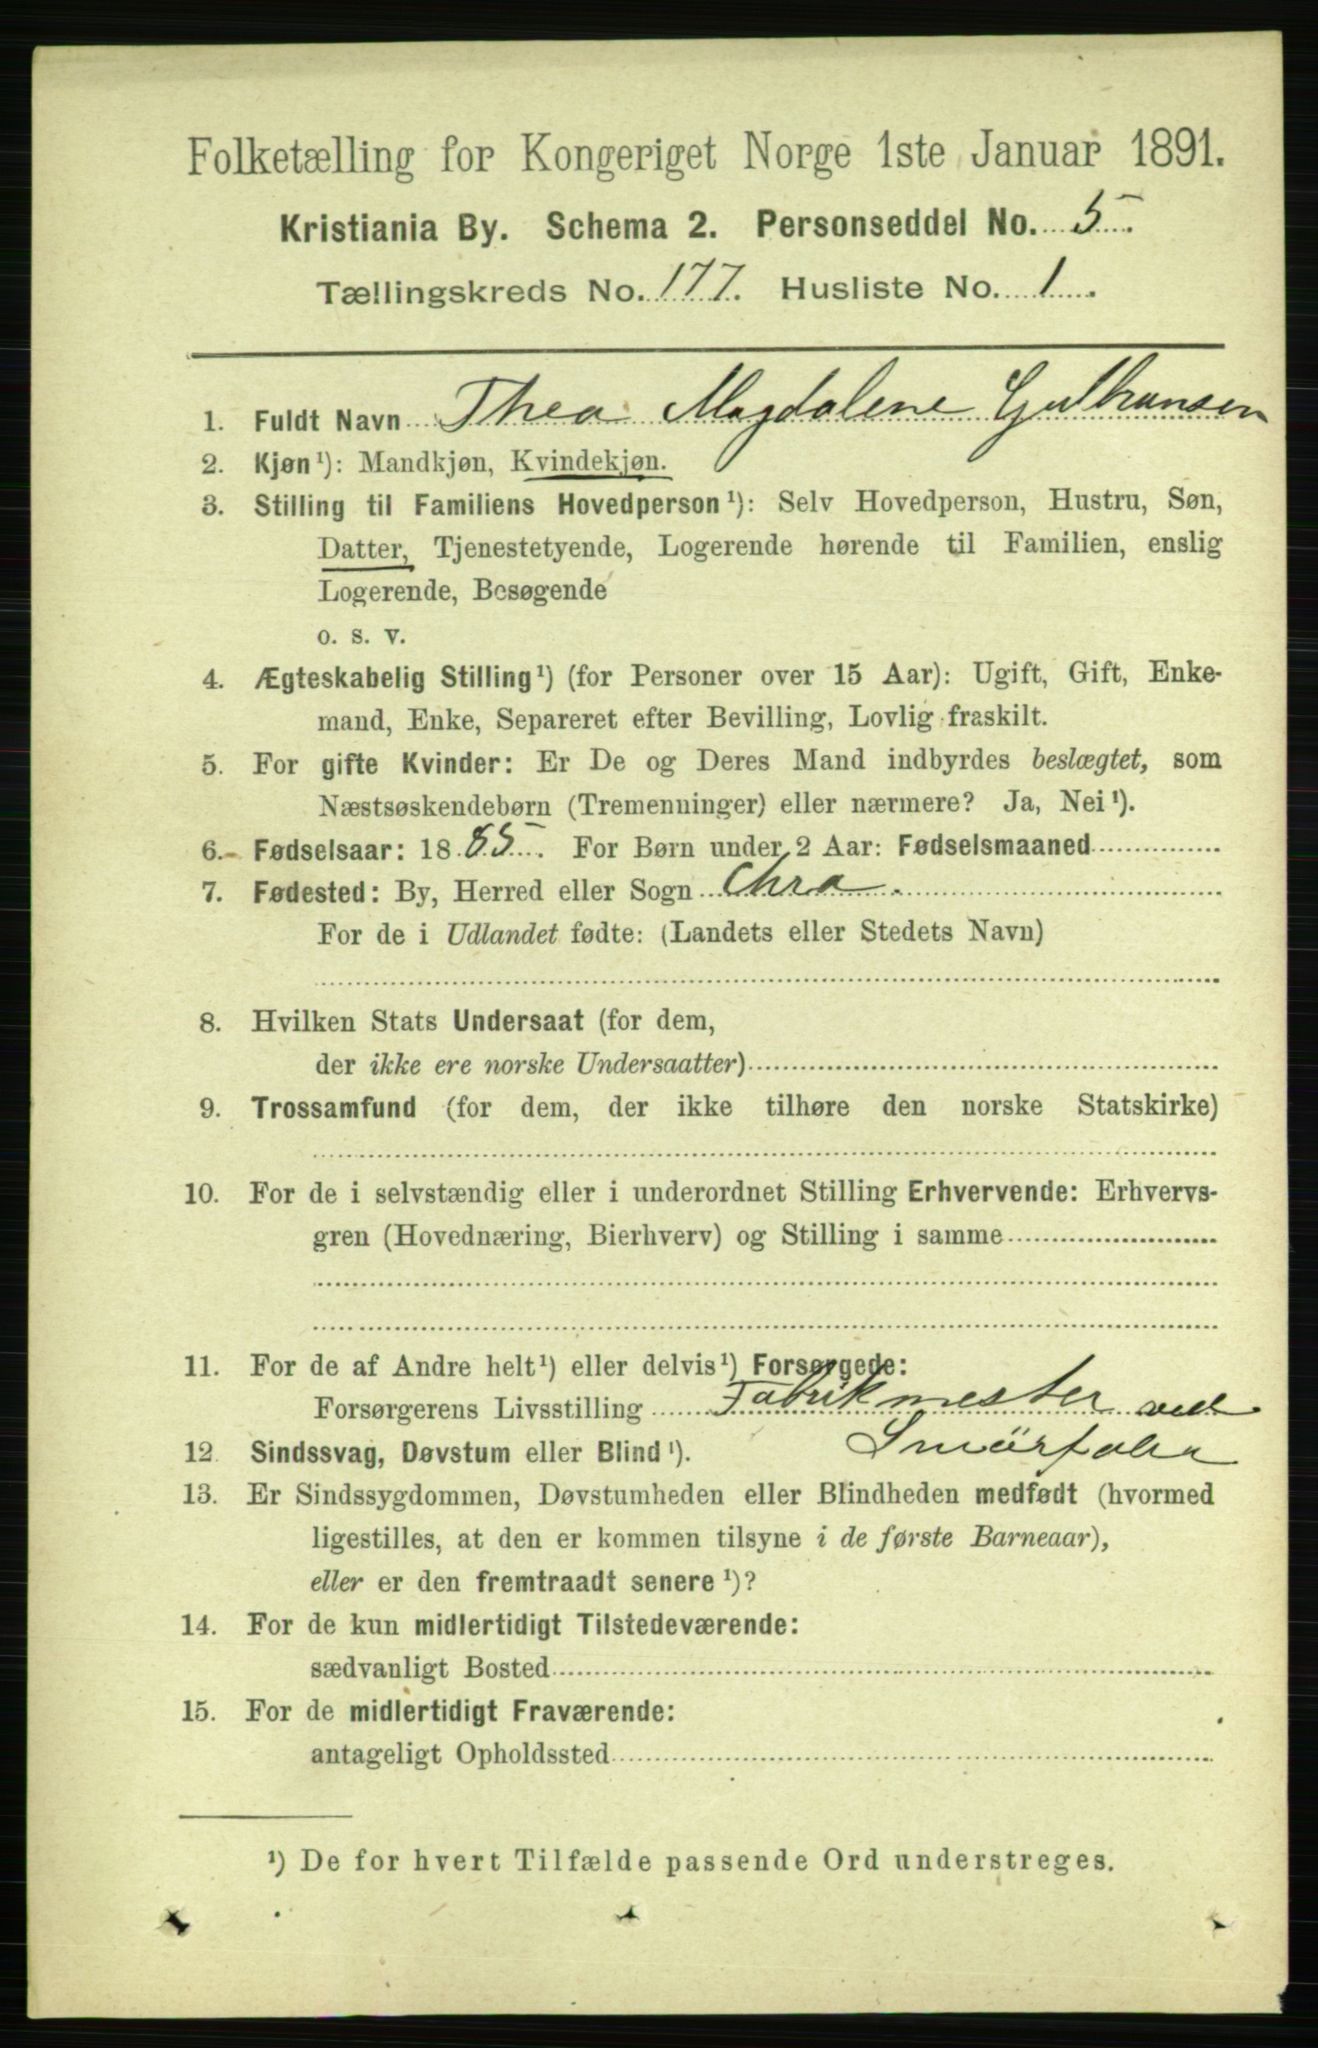 Folketælling for Kongeriget Norge 1ste Januar 1891.
Kristiania By. Schema 2. Personseddel No. 5.
Tællingskreds No. 177. Husliste No. 1.
1. Fuldt Navn Thea Magdalene Gulbransen
2. Kjøn¹): Mandkjøn, Kvindekjøn.
3. Stilling til Familiens Hovedperson¹): Selv Hovedperson, Hustru, Søn,
Datter, Tjenestetyende, Logerende hørende til Familien, enslig
Logerende, Besøgende
o. s. v.
4. Ægteskabelig Stilling¹) (for Personer over 15 Aar): Ugift, Gift, Enke-
mand, Enke, Separeret efter Bevilling, Lovlig fraskilt.
5. For gifte Kvinder: Er De og Deres Mand indbyrdes beslægtet, som
Næstsøskendebørn (Tremenninger) eller nærmere? Ja, Nei¹).
6. Fødselsaar: 1885. For Børn under 2 Aar: Fødselsmaaned
7. Fødested: By, Herred eller Sogn Chra.
For de i Udlandet fødte: (Landets eller Stedets Navn)
8. Hvilken Stats Undersaat (for dem,
der ikke ere norske Undersaatter)
9. Trossamfund (for dem, der ikke tilhøre den norske Statskirke)
10. For de i selvstændig eller i underordnet Stilling Erhvervende: Erhvervs-
gren (Hovednæring, Bierhverv) og Stilling i samme
11. For de af Andre helt¹) eller delvis¹) Forsørgede:
Forsørgerens Livsstilling Fabrikmester ved
Smörfabr
12. Sindssvag, Døvstum eller Blind¹).
13. Er Sindssygdommen, Døvstumheden eller Blindheden medfødt (hvormed
ligestilles, at den er kommen tilsyne i de første Barneaar),
eller er den fremtraadt senere¹)?
14. For de kun midlertidigt Tilstedeværende:
sædvanligt Bosted
15. For de midlertidigt Fraværende:
antageligt Opholdssted
¹) De for hvert Tilfælde passende Ord understreges.